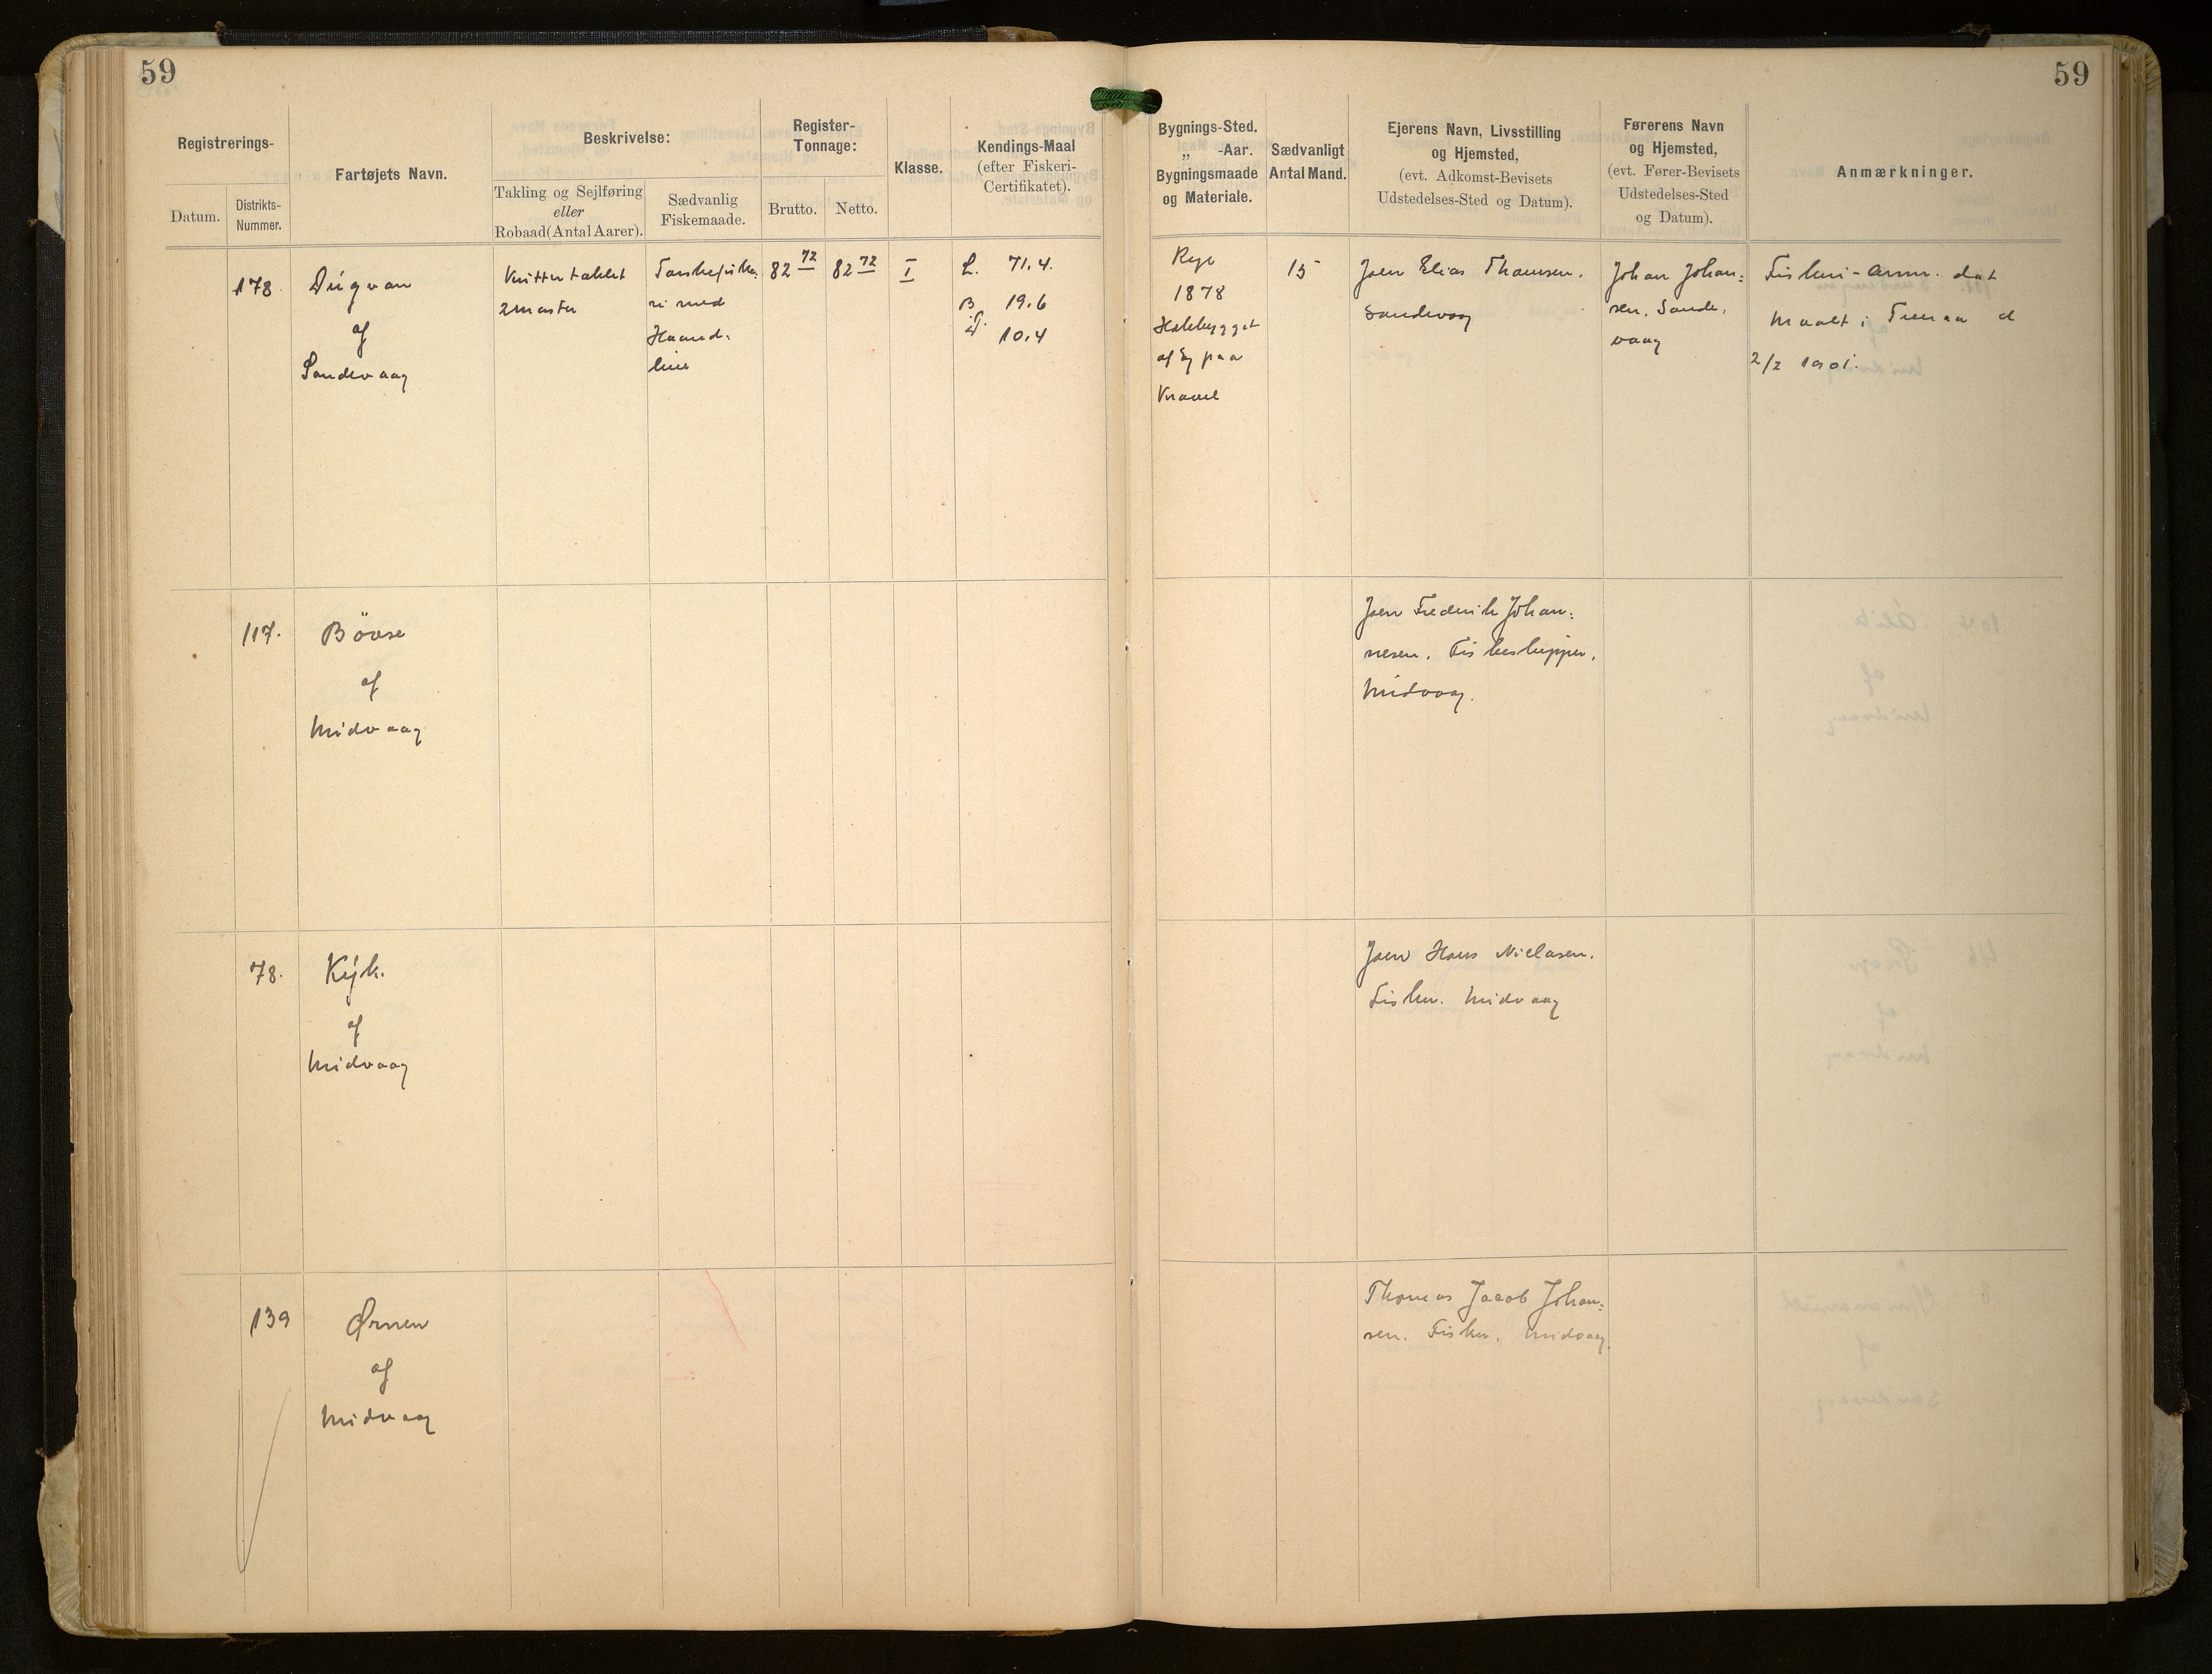 59
59
Registrerings-
Datum.
Distrikts-
Nummer.
Fartøjets Navn.
Beskrivelse:
Takling og Sejlføring
eller
Robaad (Antal Aarer).
Sædvanlig
Fiskemaade.
Register-
Tonnage:
Brutto.
Netto.
Klasse.
Kendings-Maal
(efter Fiskeri-
Certifikatet).
Bygnings-Sted.
„ -Aar.
Bygningsmaade
og Materiale.
Sædvanligt
Antal Mand.
Ejerens Navn, Livsstilling
og Hjemsted,
(evt. Adkomst-Bevisets
Udstedelses-Sted og Datum).
Førerens Navn
og Hjemsted,
(evt. Fører-Bevisets
Udstedelses-Sted
og Datum).
Anmærkninger.
178
Dúgvan
af
Sandevaag
Kuttertaklet
2master
Torskefiske:
ri med
Haand:
line
82 72
82 72
I
L. 71.4.
B. 19.6
D. 10.4
Rye
1878
af Eg paa
Kravel
15
Joen Elias Thomsen.
Sandevaag
Johan Johan:
sen. Sande:
vaag
Fiskeri-Anm. dat
Maalt i d
2/2 1901.
117.
Böose
af
Midvaag
Joen Frederik Johan:
nesen. Fiskeskipper.
Midvaag.
78.
Kyk.
af
Midvaag
Joen Hans Niclasen.
Fisker. Midvaag
139
Ørnen
af
Midvaag
Thomas Jacob Johan:
sen. Fisker. Midvaag.